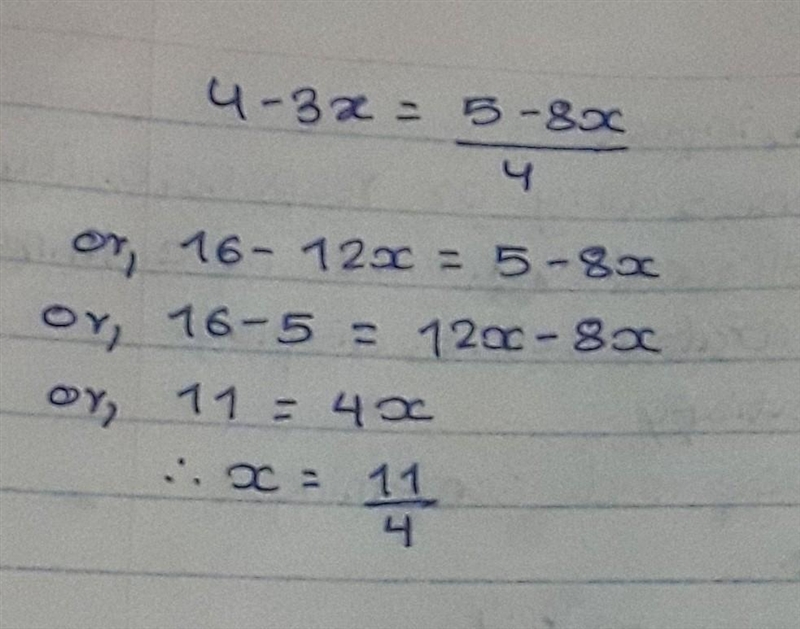 4 - 3x = (5 - 8x)/4
or, 16 - 12x = 5 - 8x
or, 16 - 5 = 12x - 8x
or, 11 = 4x
∴ x = 11/4